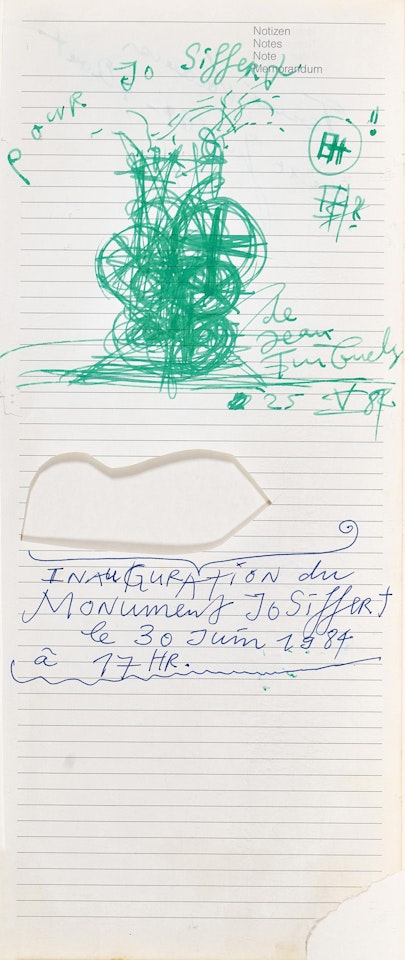 Notizen
Notes
Note
Memorandum
POUR Jo Siffert
de
Jean
Tinguely
25 V 84
INAUGURATION du
MONUMENT JO SIFFERT
le 30 Juin 1984
à 17 HR.